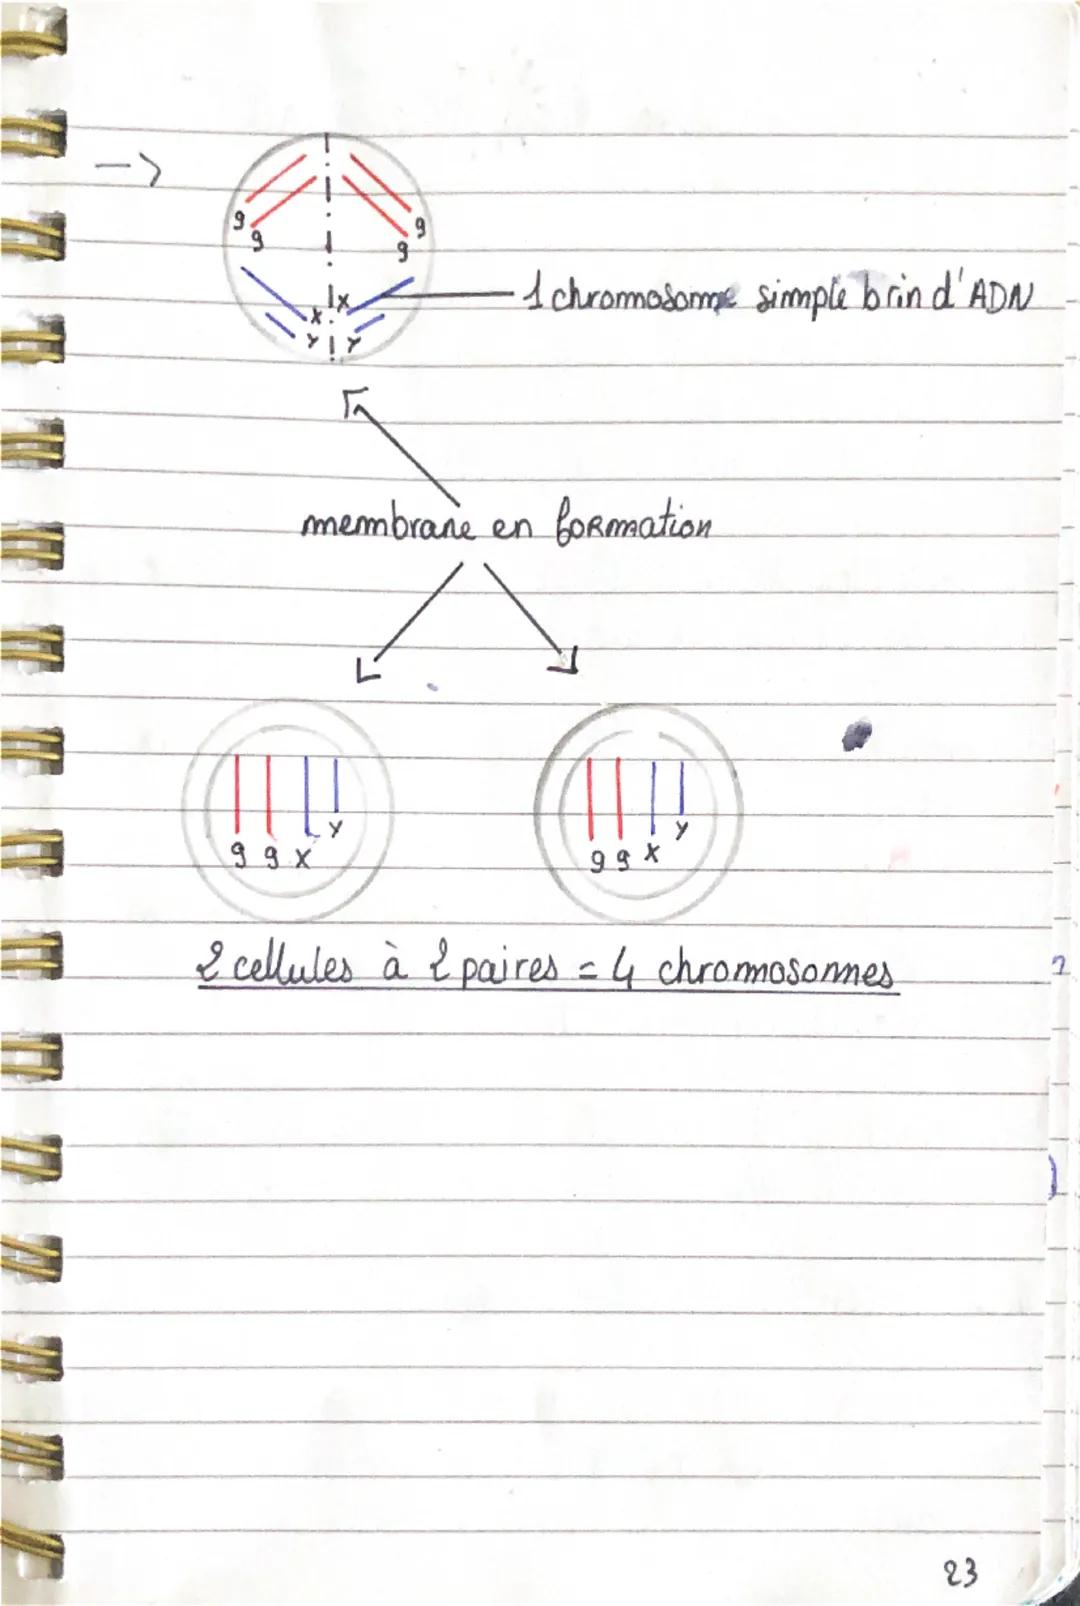 ->
g g
g g
1 chromosome simple brin d'ADN
x x
Y Y
membrane en formation
g g x Y
g g x Y
2 cellules à 2 paires = 4 chromosomes
23